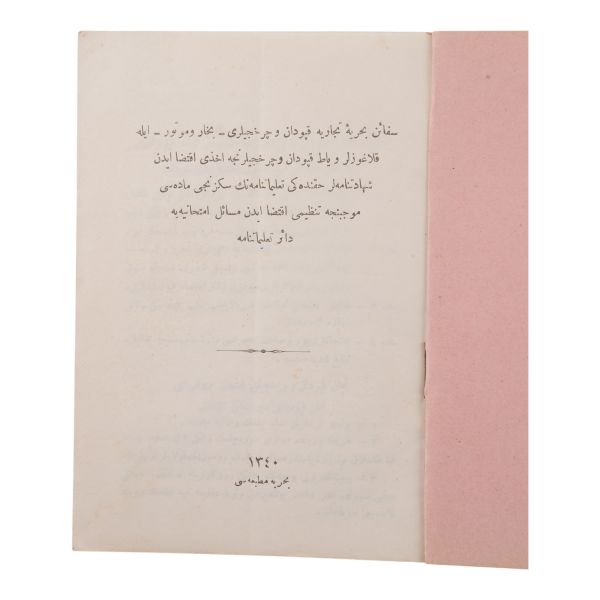 سفائن بحریهٔ تجاریه قپودان و چرخجیلری ــ بخار وموتور ــ ایله
قلاغوزلر و یاط قپودان و چرخجیلرنجه اخذی اقتضا ایدن
شهادتنامه‌لر حقنده‌کی تعلیماتنامه‌نك سکزنجی ماده‌سی
موجبنجه تنظیمی اقتضا ایدن مسائل امتحانیه‌یه
دائر تعلیماتنامه
١٣٤٠
بحریه مطبعه‌سی